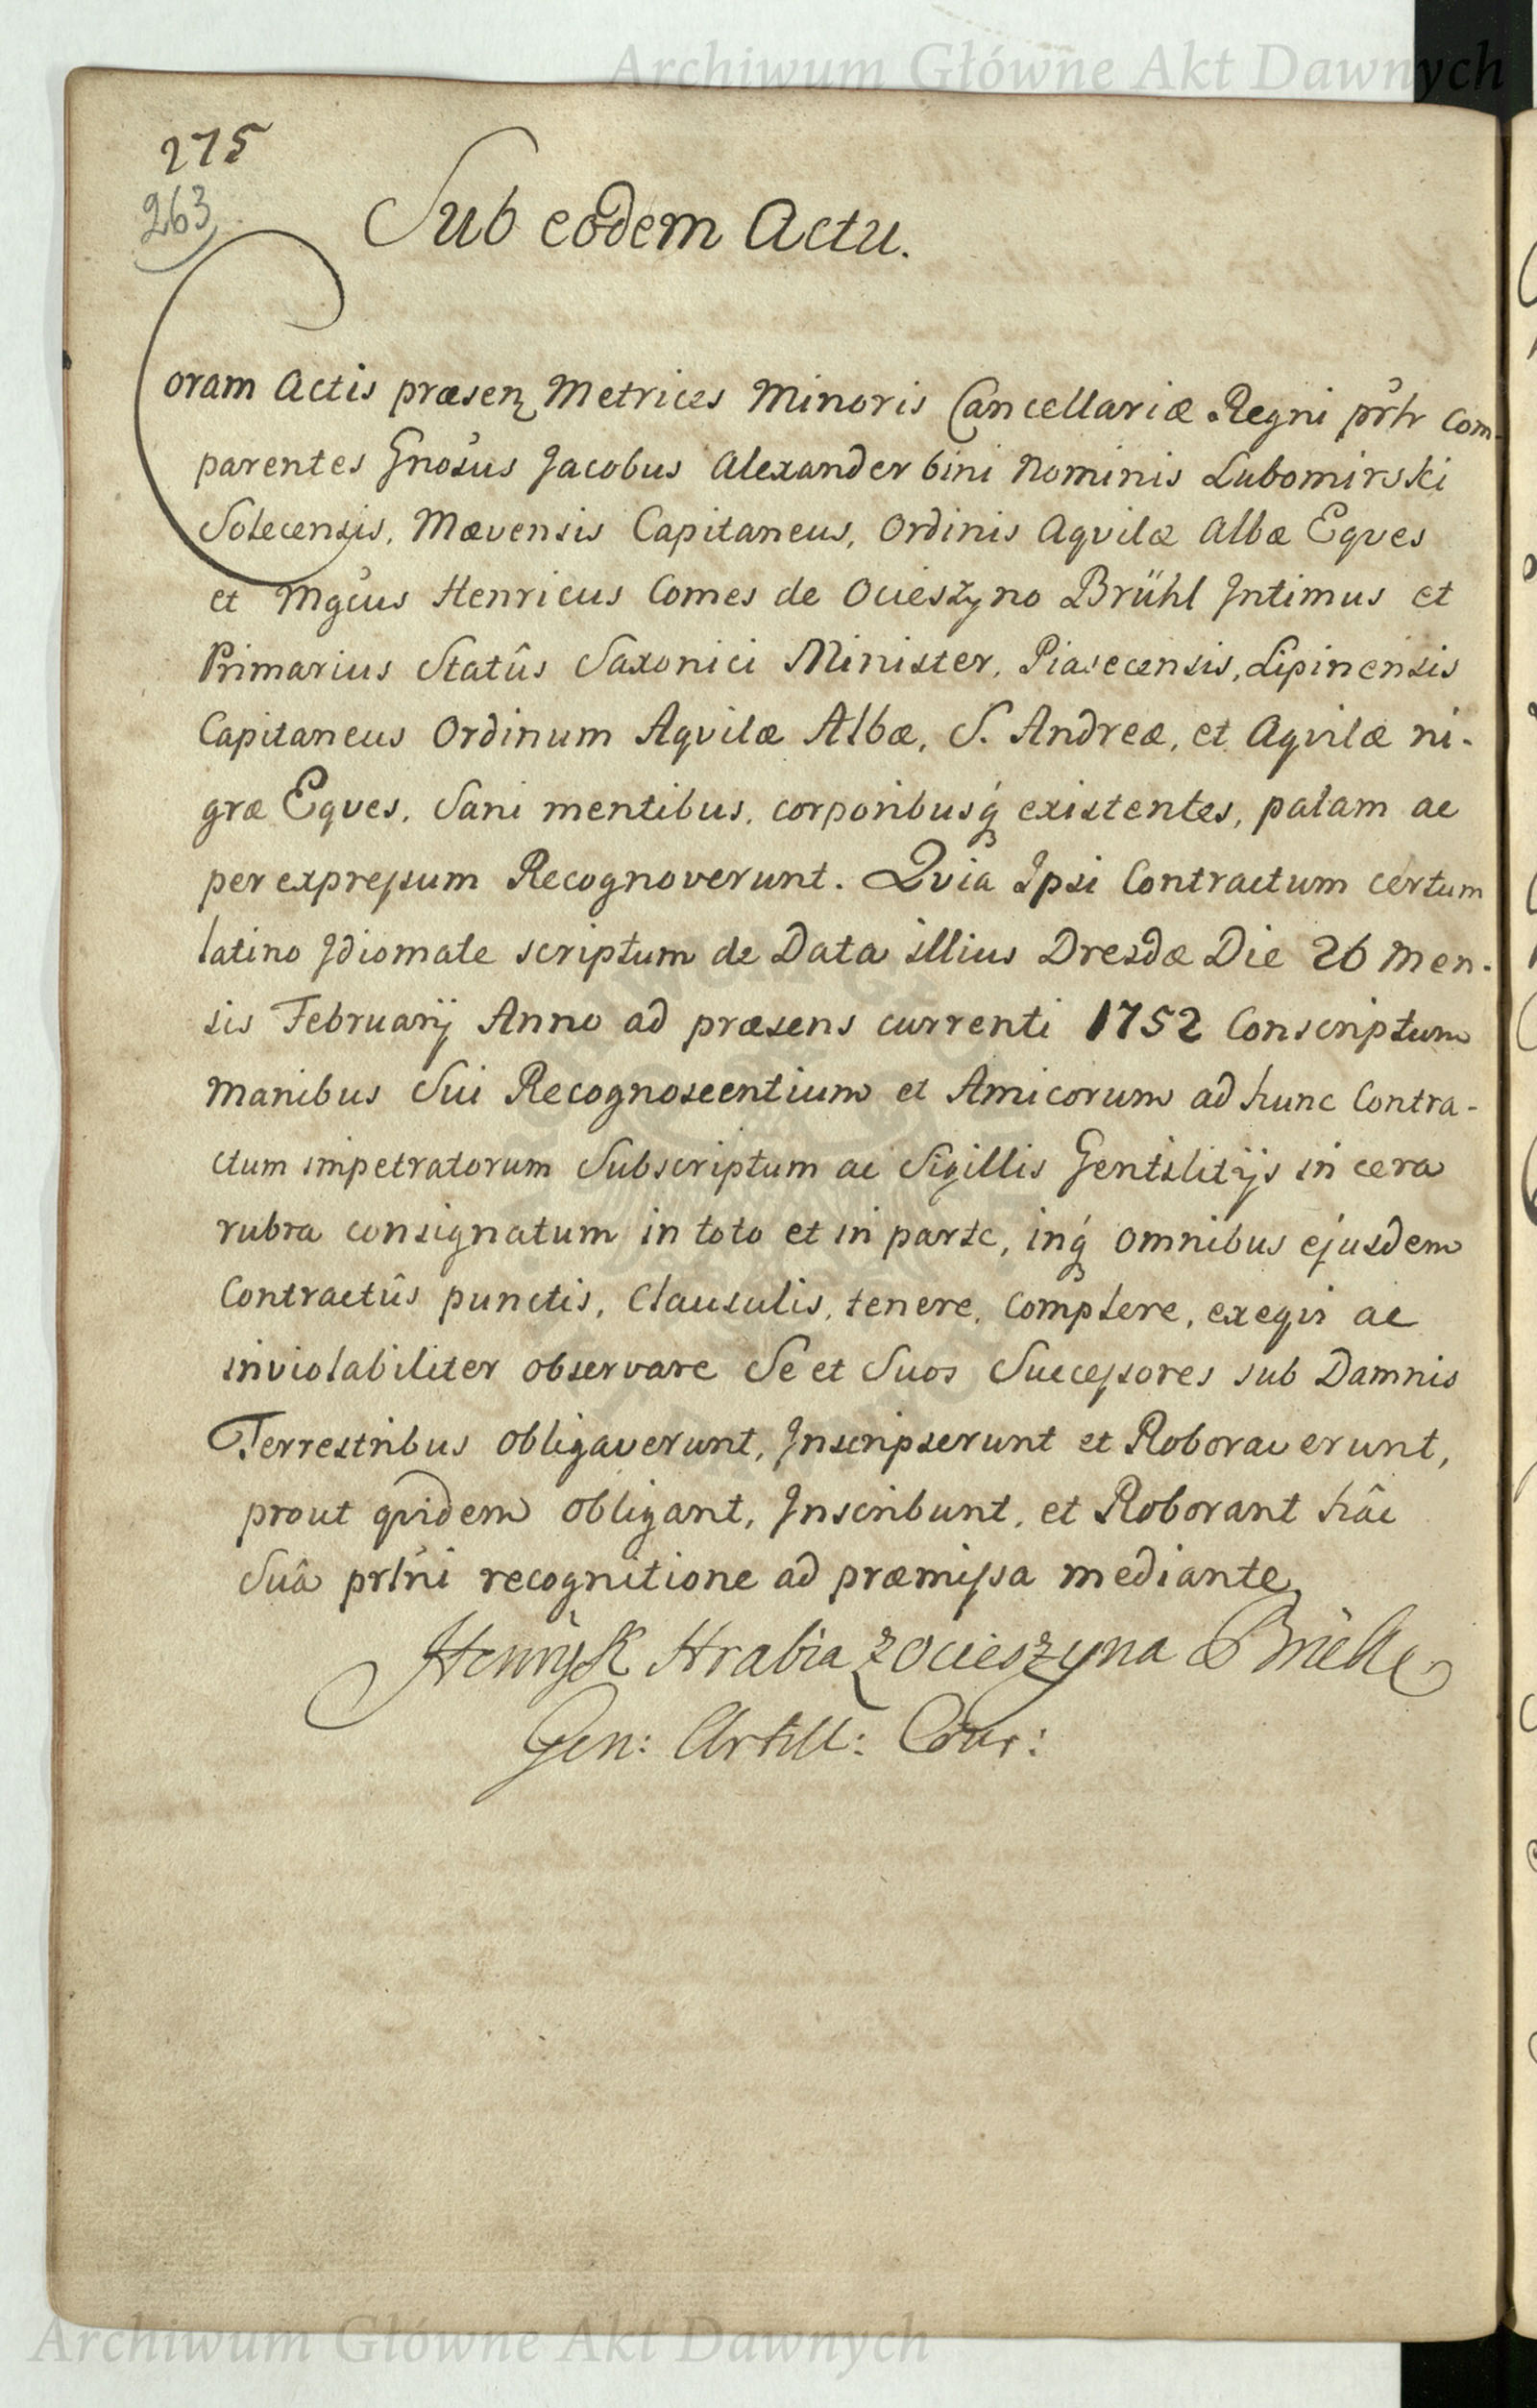 Archiwum Główne Akt Dawnych
275
263
Sub eodem Actu.
Coram Actis præsenz Metrices Minoris Cancellariæ Regni prhr Com-
parentes Gnosus Jacobus Alexander bini Nominis Lubomirski
Solecensis, Mævensis Capitaneus, Ordinis Aqvilæ Albæ Eqves
et Mgcus Henricus Comes de Ocieszyno Brühl Intimus et
Primarius Statûs Saxonici Minister, Piasecensis, Lipinensis
Capitaneus Ordinum Aqvilæ Albæ, S. Andreæ, et Aqvilæ ni-
græ Eqves, Sani mentibus, corporibusq́ existentes, palam ac
per expressum Recognoverunt. Qvia Ipsi Contractum certum
latino Idiomate scriptum de Data illius Dresdæ Die 26 Men-
sis Februarij Anno ad præsens currenti 1752 Conscriptum
Manibus Sui Recognoscentium et Amicorum ad hunc Contra-
ctum impetratorum Subscriptum ac Sigillis Gentilitijs in cera
rubra consignatum in toto et in parte, inq́ omnibus ejusdem
Contractûs punctis, Clausulis, tenere, Complere, exeqvi ac
inviolabiliter observare Se et Suos Successores sub Damnis
Terrestribus obligaverunt, Inscripserunt et Roboraverunt,
prout qvidem obligant, Inscribunt, et Roborant hâc
Suâ prlni recognitione ad præmissa mediante
Henryk Hrabia z Ocieszyna Brühl
Gen: Artill: Cour:
Archiwum Główne Akt Dawnych